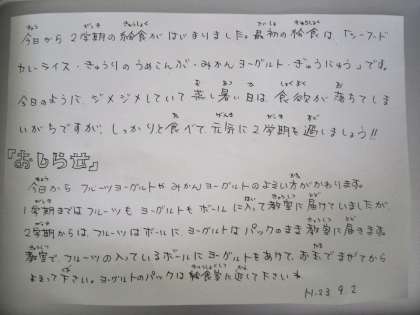 今日から2学期の給食がはじまりました。最初の給食は「シーフード
カレーライス・きゅうりのうめこんぶ・みかんヨーグルト・ぎゅうにゅう」です。
今日のように、ジメジメしていて蒸し暑い日は、食欲が落ちてしま
いがちですが、しっかりと食べて、元気に2学期を過しましょう!!
『おしらせ』
今日から フルーツヨーグルトや みかんヨーグルトの よそい方がかわります。
1学期まではフルーツも ヨーグルトも ボールに入って教室に届けていましたが、
2学期からは、フルーツはボールに、ヨーグルトはパックのまま教室に届きます。
教室で、フルーツの入っているボールにヨーグルトをあけて、おたまでまぜてから
よそって下さい。ヨーグルトのパックは給食室に返して下さいね
H.23 9.2